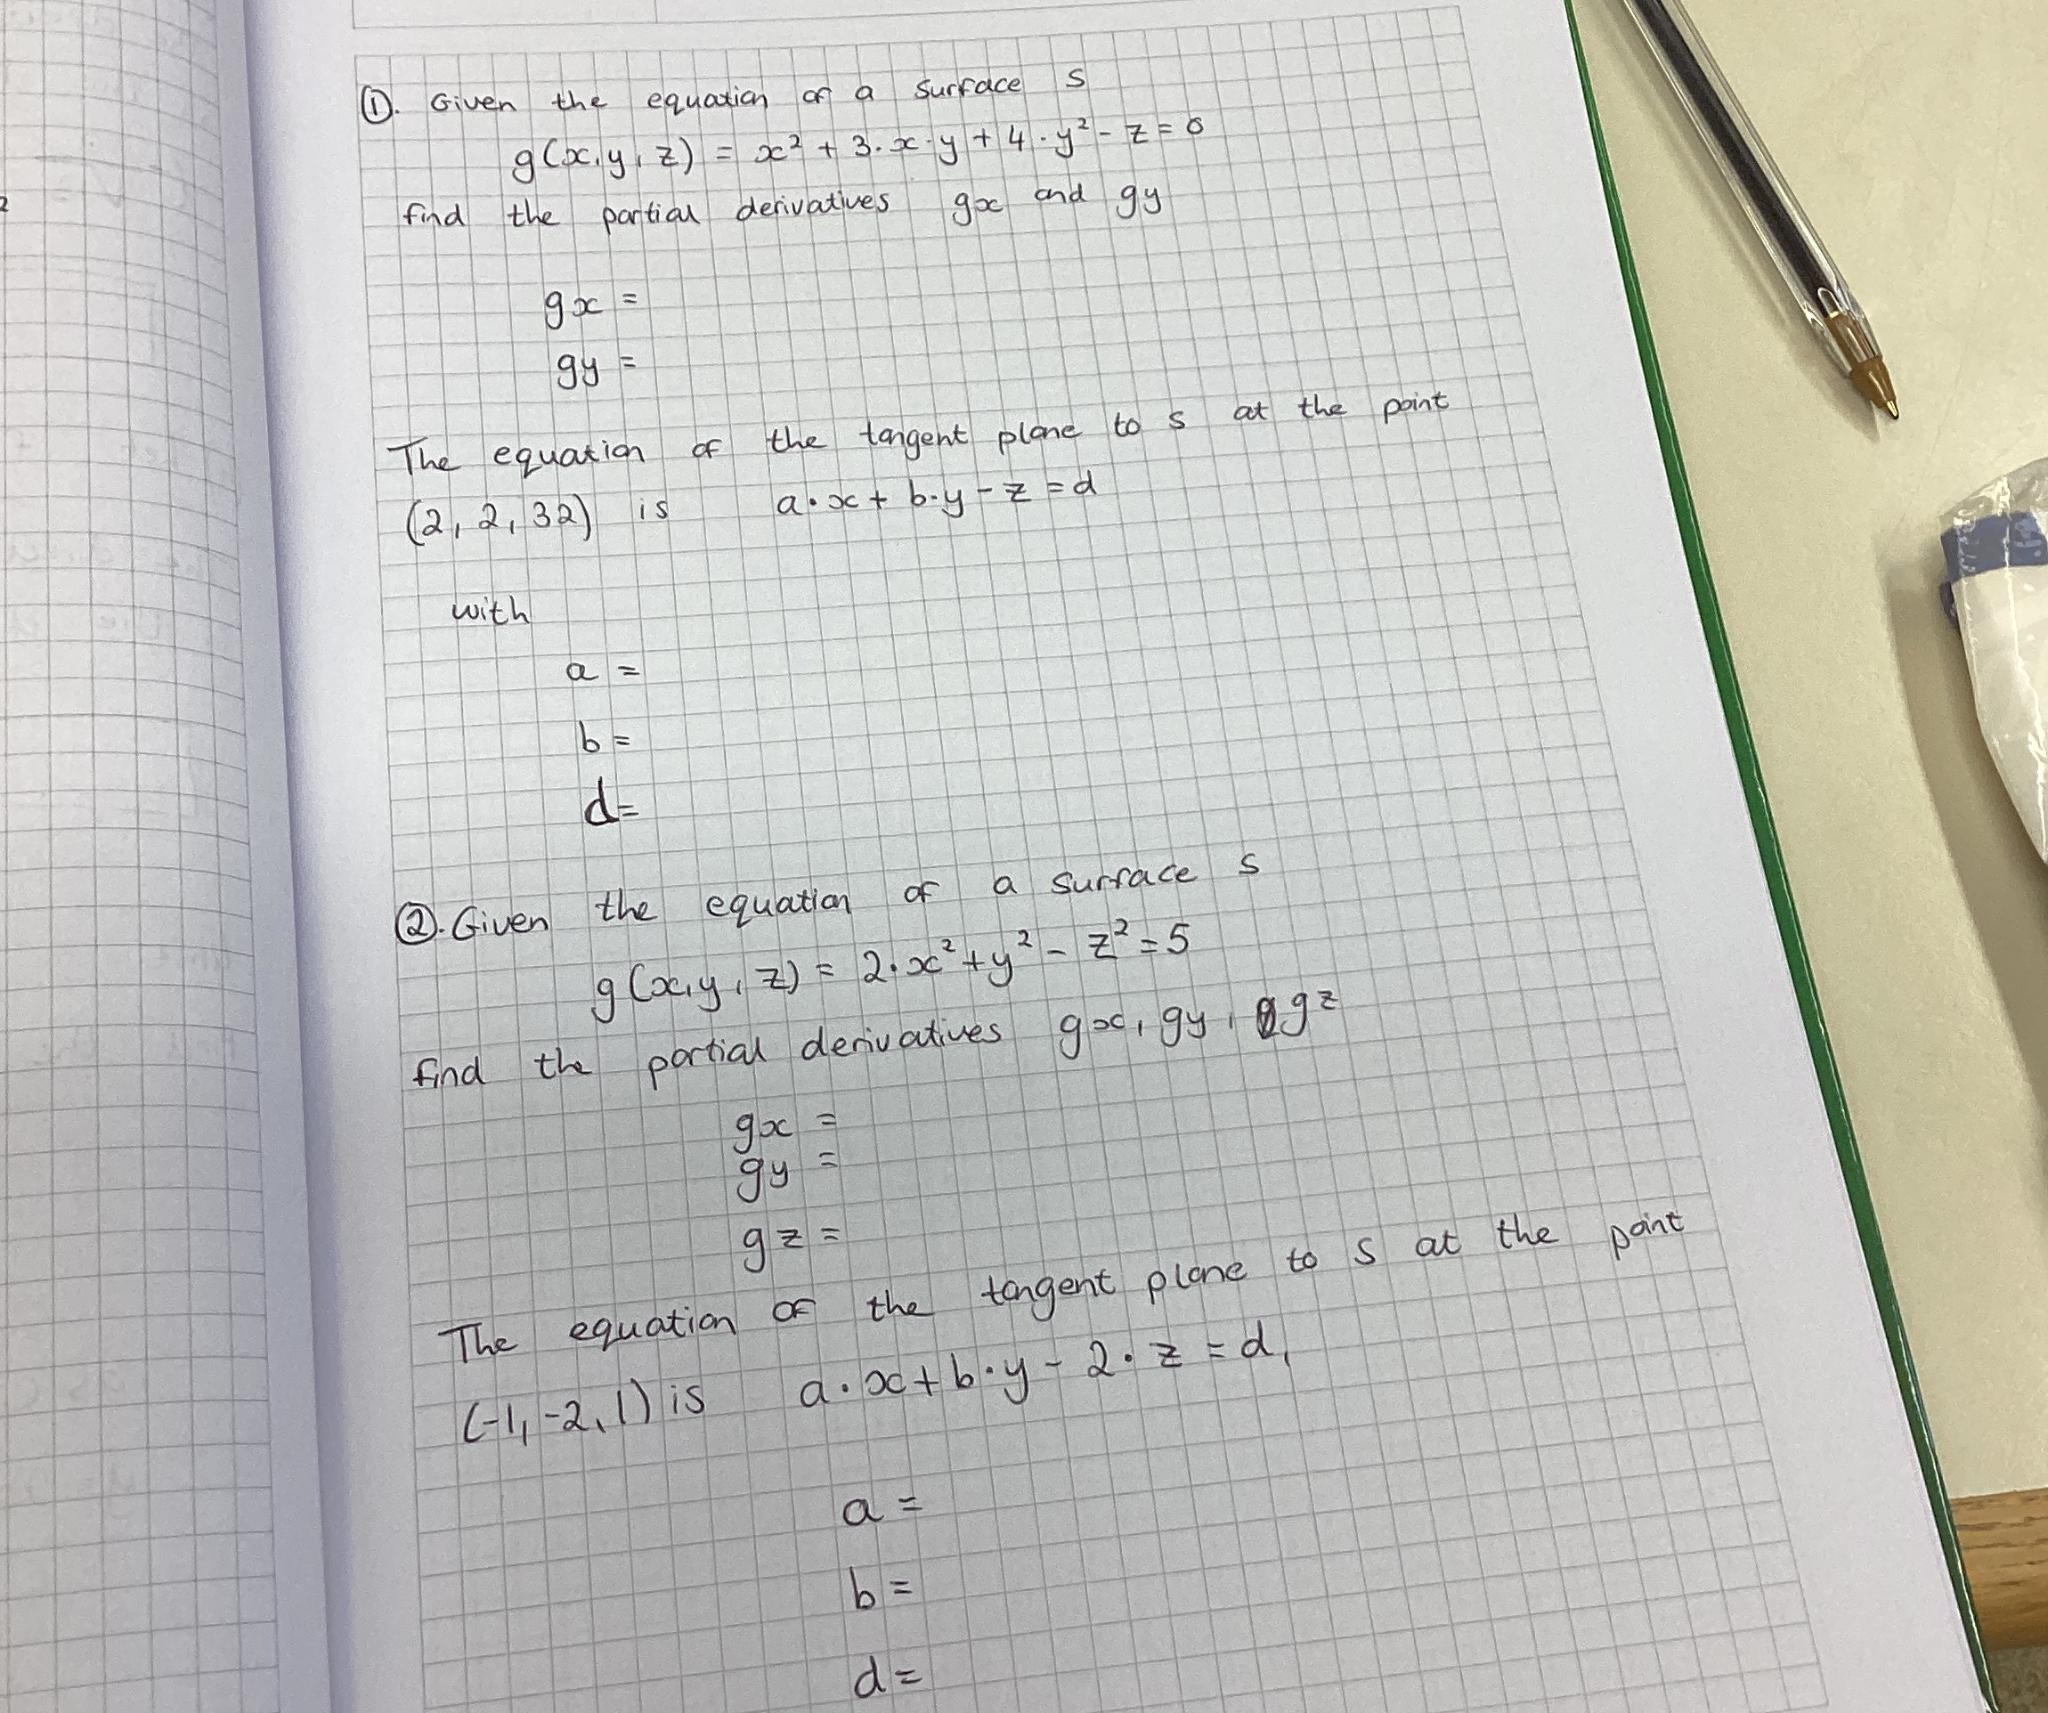 ①. Given the equation of a surface S
g(x, y, z) = x² + 3·x·y + 4·y² - z = 0
find the partial derivatives gx and gy
gx =
gy =
The equation of the tangent plane to S at the point
(2, 2, 32) is a·x + b·y - z = d
with
a =
b =
d =
②. Given the equation of a surface S
g(x, y, z) = 2·x² + y² - z² = 5
find the partial derivatives gx, gy, gz
gx =
gy =
gz =
The equation of the tangent plane to S at the point
(-1, -2, 1) is a·x + b·y - 2·z = d,
a =
b =
d =